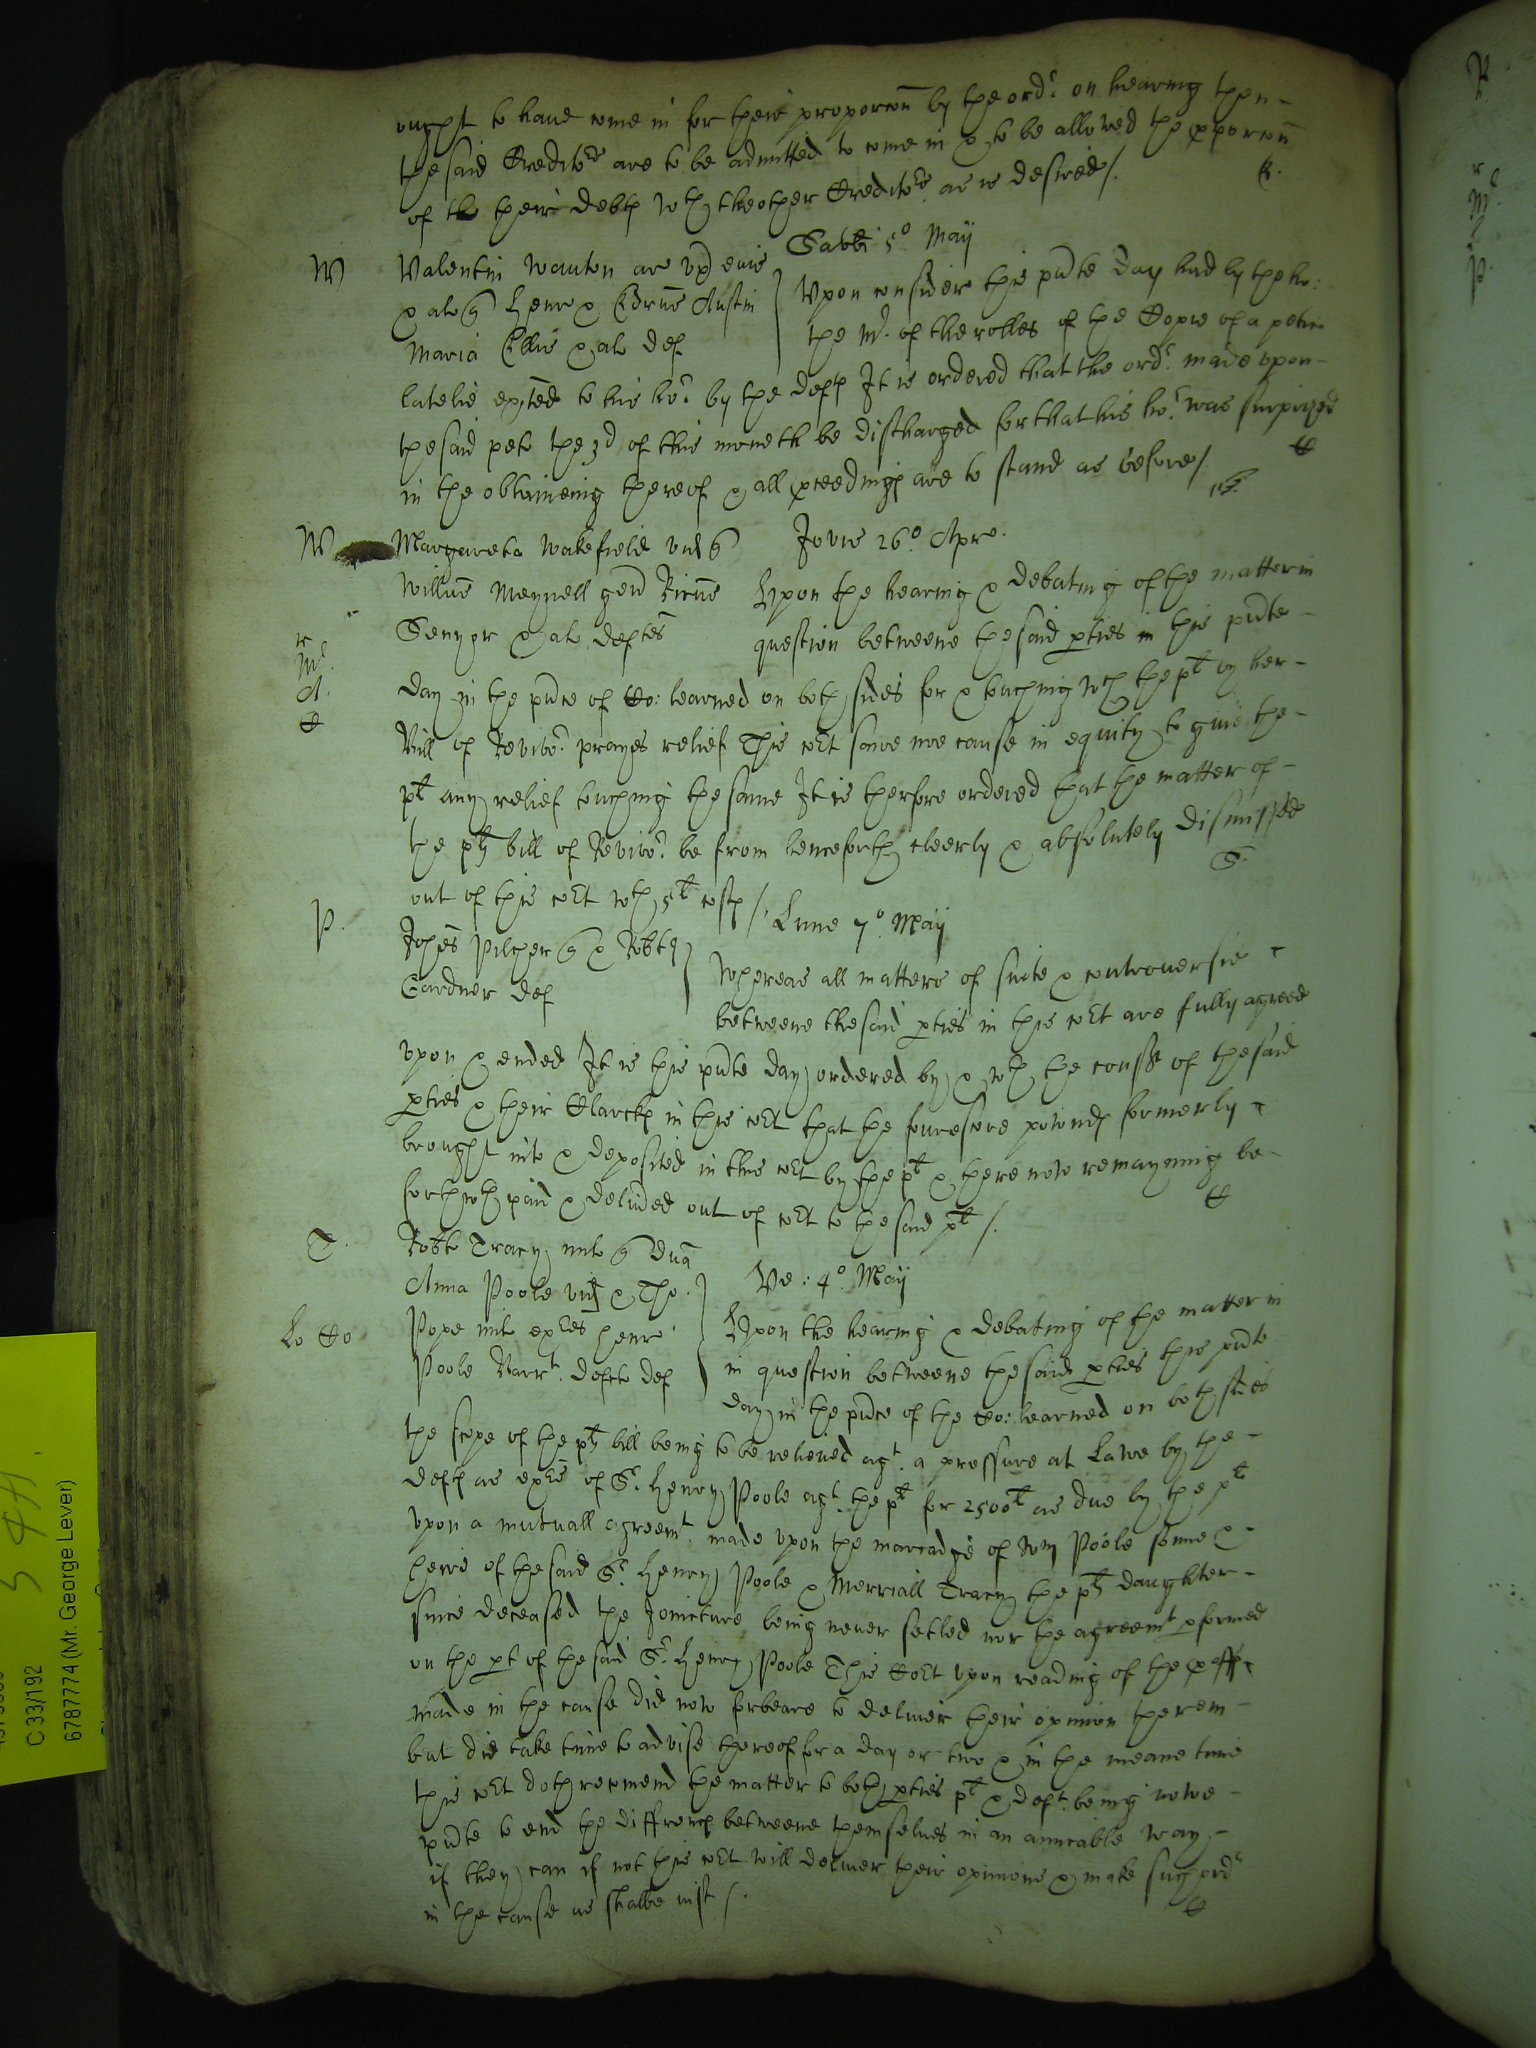 ought to haue come in for their proporcõn by the ord.r on hearing then
the said Creditors are to be admitted to come in & to be allowed the p̱porcõn
of the their debts wth the other Creditors as is desired /.
R.
Sabti 5o Maij
W
Valentin Wauton ar
& al qs Henr & Edrus Austin
Maria Ellis & al def
Vpon consider this pñte day had by the ho:
the Mr. of the rolles of the Copie of a petic
latelie exhted to his hor by the defts It is ordered that the ordr. made vpon
the said peto the 3d of this moneth be discharged for that his hor was surprized
in the obteineing thereof & all p̱ceedings are to stand as before /.
W
Margareta Wakefield vid q
Willus Meynell gen Ricus
Senyor & al deftes
Jovis 26o. Apr.
Vpon the hearing & debating of the matter in
question betweene the said p̱ties in this pñte
r
Mr.
A.
day in the pñce of Co: learned on both sides for & touching wch the plt by her
Bill of Revivor. prayes relief This cort sawe noe cause in equity to giue the
plt any relief touching the same It is therfore ordered that the matter of
the plts bill of Revivor. be from henceforth cleerly & absolutely dismissed
out of this cort wth 5l costs /.
S.
P.
Johes Pilcher q & Robtus
Gardner def
Lune 7o. Maij
Whereas all matters of suite & controuersie
betweene the said p̱ties in this cort are fully agreed
vpon & ended It is this pñte day ordered by & wth the consent of the said
p̱ties & their Clarcks in this cort that the fourescore pownds formerly
brought into & deposited in this cort by the plt & there now remayning be
forthwth paid & deliued out of cort to the said plt /.
T.
Robto Tracy milo q Dna
Anna Poole vid & Tho.
Pope milo exres Henr
Poole Barrt. deftо def
Ve: 4o. Maij
Lo Co
Vpon the hearing & debating of the matter in
in question betweene the said p̱ties this pñte
day in the pñce of the Co: learned on both sides
the scope of the plts bill being to be releiued agt. a pressure at Lawe by the
defts as exrs of Sr. Henry Poole agt. the plt for 2500l as due by the plt
vpon a mutuall agreemt. made vpon the mariadge of Wm Poole sonne &
heire of the said Sr. Henry Poole & Merriall Tracy the plts daughter
since deceased the Joincture being neuer setled nor the agreemt p̱formed
on the p̱t of the said Sr. Henry Poole This Cort vpon reading of the p̱ffs
made in the cause did now forbeare to deliuer their opinion therein
but did take time to advise thereof for a day or two & in the meane time
this cort doth recomend the matter to both p̱ties plt & deft. being nowe
pñte to end the diffrencs betweene themselues in an amicable way
if they can if not this cort will deliuer their opinions & make such ordr
in the cause as shalbe iust /.
C 33/192
6787774 (Mr. George Lever)